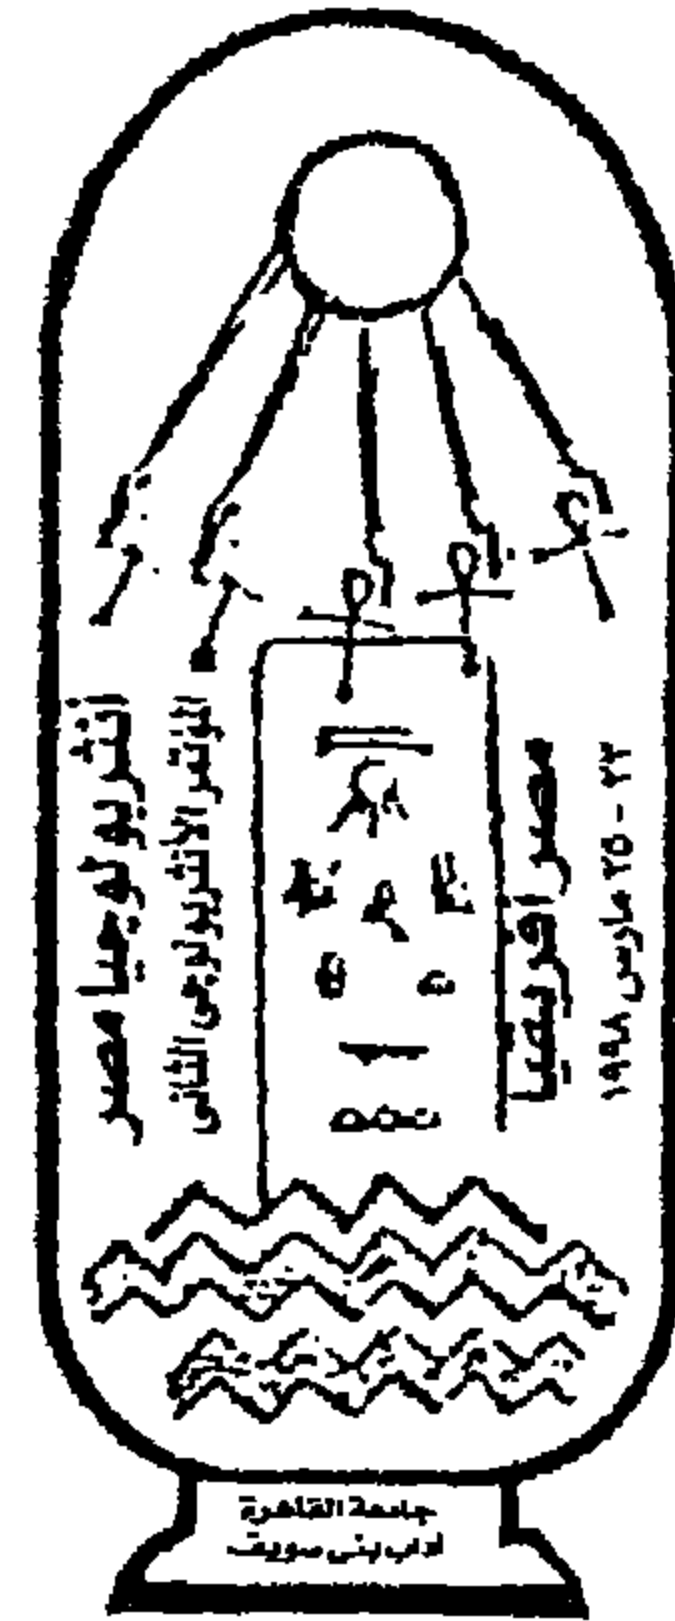 أنثربولوجيا مصر
المؤتمر الأنثربولوجى الثانى
مصر افريقيا
٢٣ - ٢٥ مارس ١٩٩٨
جامعة القاهرة
اداب بنى سويف